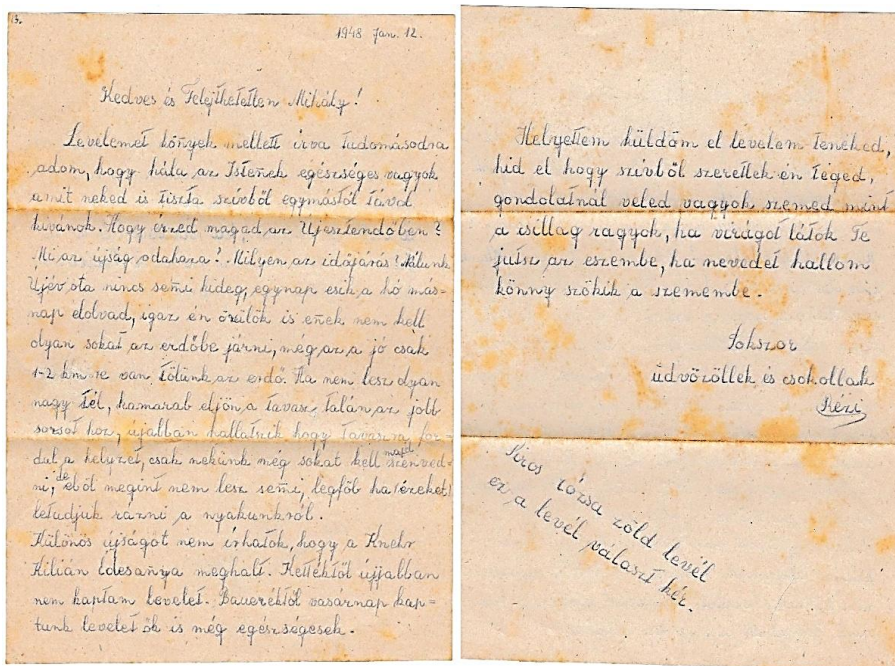 13.
1948 Jan. 12.
Kedves és Felejthetetlen Mihály!
Levelemet könyek mellett írva tudomásodra
adom, hogy hála az Istenek egészséges vagyok
amit neked is tiszta szívből egymástól távol
kívánok. Hogy érzed magad az Újesztendőben?
Mi az újság odahaza? Milyen az időjárás? Nálunk
Újév óta nincs semi hideg, egynap esik a hó más-
nap elolvad, igaz én örülök is enek nem kell
olyan sokat az erdőbe járni, még az a jó csak
1-2 km re van tőlünk az erdő. Ha nem lesz olyan
nagy tél, hamarab eljön a tavasz, talán az jobb
sorsot hoz, újabban hallatszik hogy tavaszra for-
dul a helyzet, csak nekünk még sokat kell majd szenved-
ni, de ebből megint nem lesz semi, legföb ha (ézeket)
letudjuk rázni a nyakunkról.
Különös újságot nem írhatok, hogy a Knehr
Kilián Édesanya meghalt. Kettéktől újjabban
nem kaptam levelet. Baueréktől vasárnap kap=
tunk levelet ők is még egészségesek.
Helyettem küldöm el levelem tenéked,
hid el hogy szívből szeretlek én téged,
gondolatnál veled vagyok szemed mint
a csillag ragyok, ha virágot látok Te
jutsz az eszembe, ha nevedet hallom
könny szökik a szemembe.
Sokszor
üdvözöllek és csokollak
Rézi
Piros rózsa zöld levél
ez a levél választ kér.